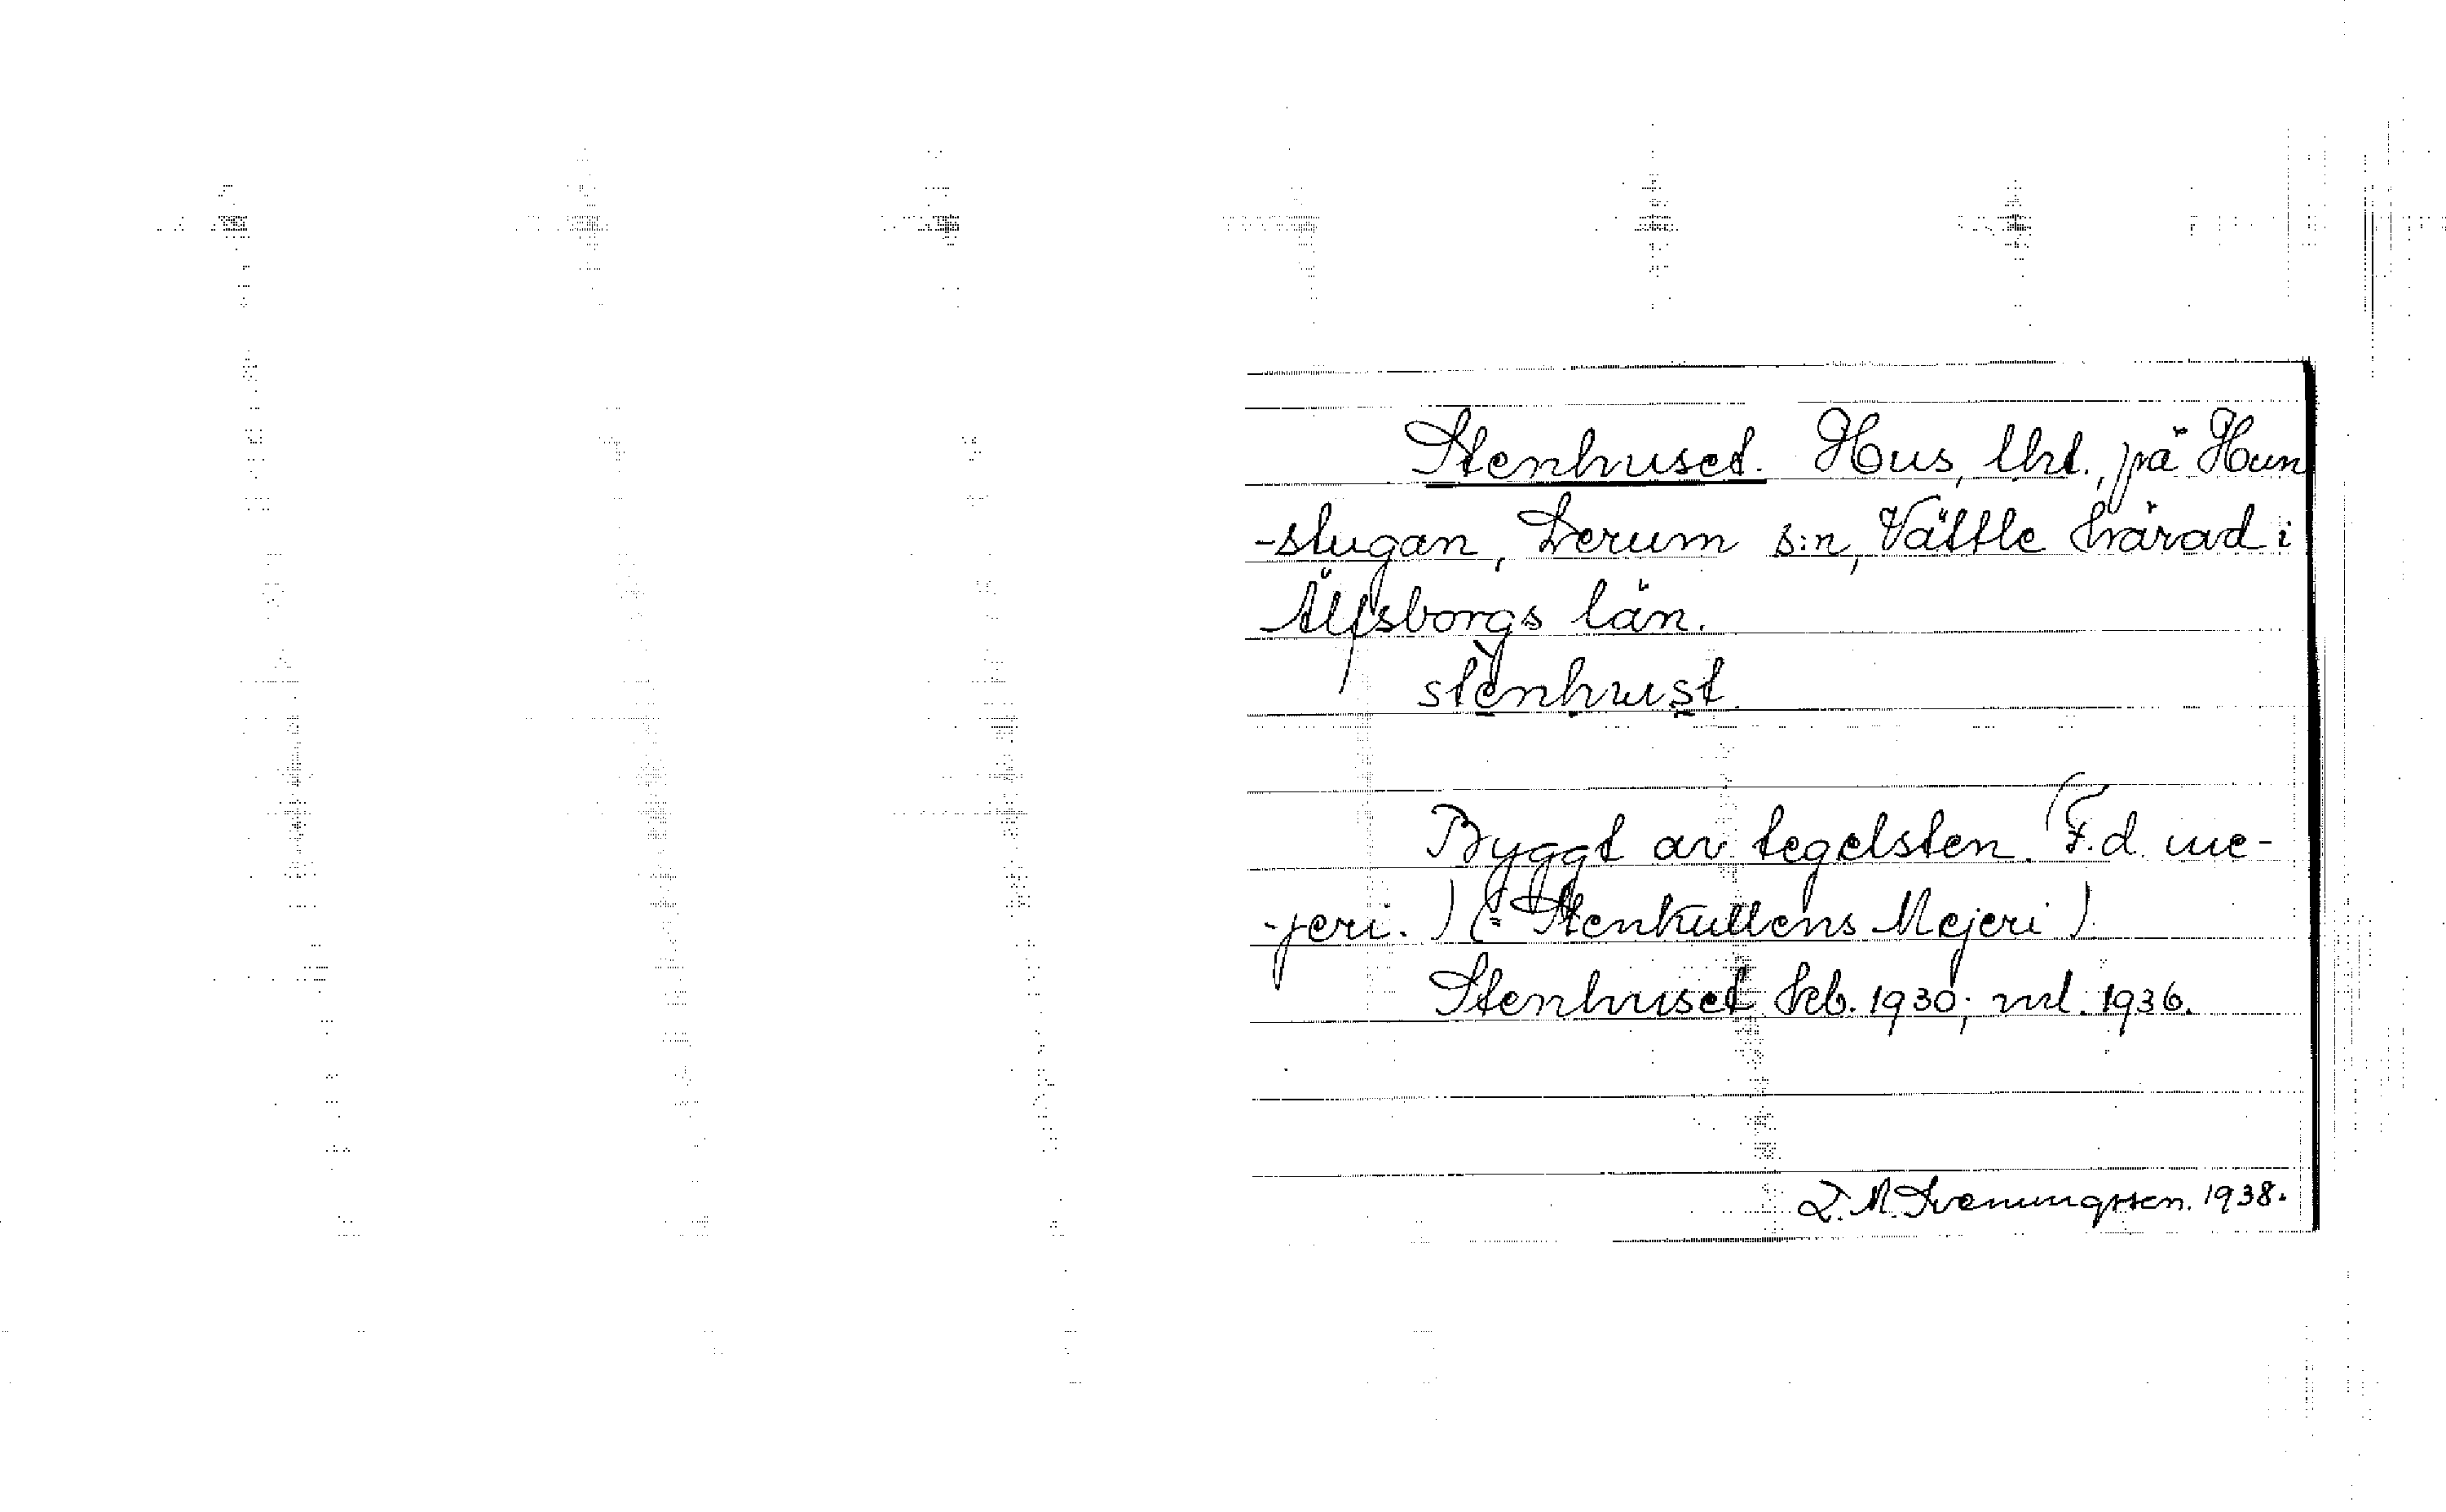 Stenhuset. Hus, lht., på Hun
-stugan, Lerum s:n, Vättle härad i
Älfsborgs län.
stènhust
Byggt av tegelsten. (F.d. me-
-jeri.) (= Stenkullens Mejeri).
Stenhuset Feb. 1930; ml. 1936.
1938.